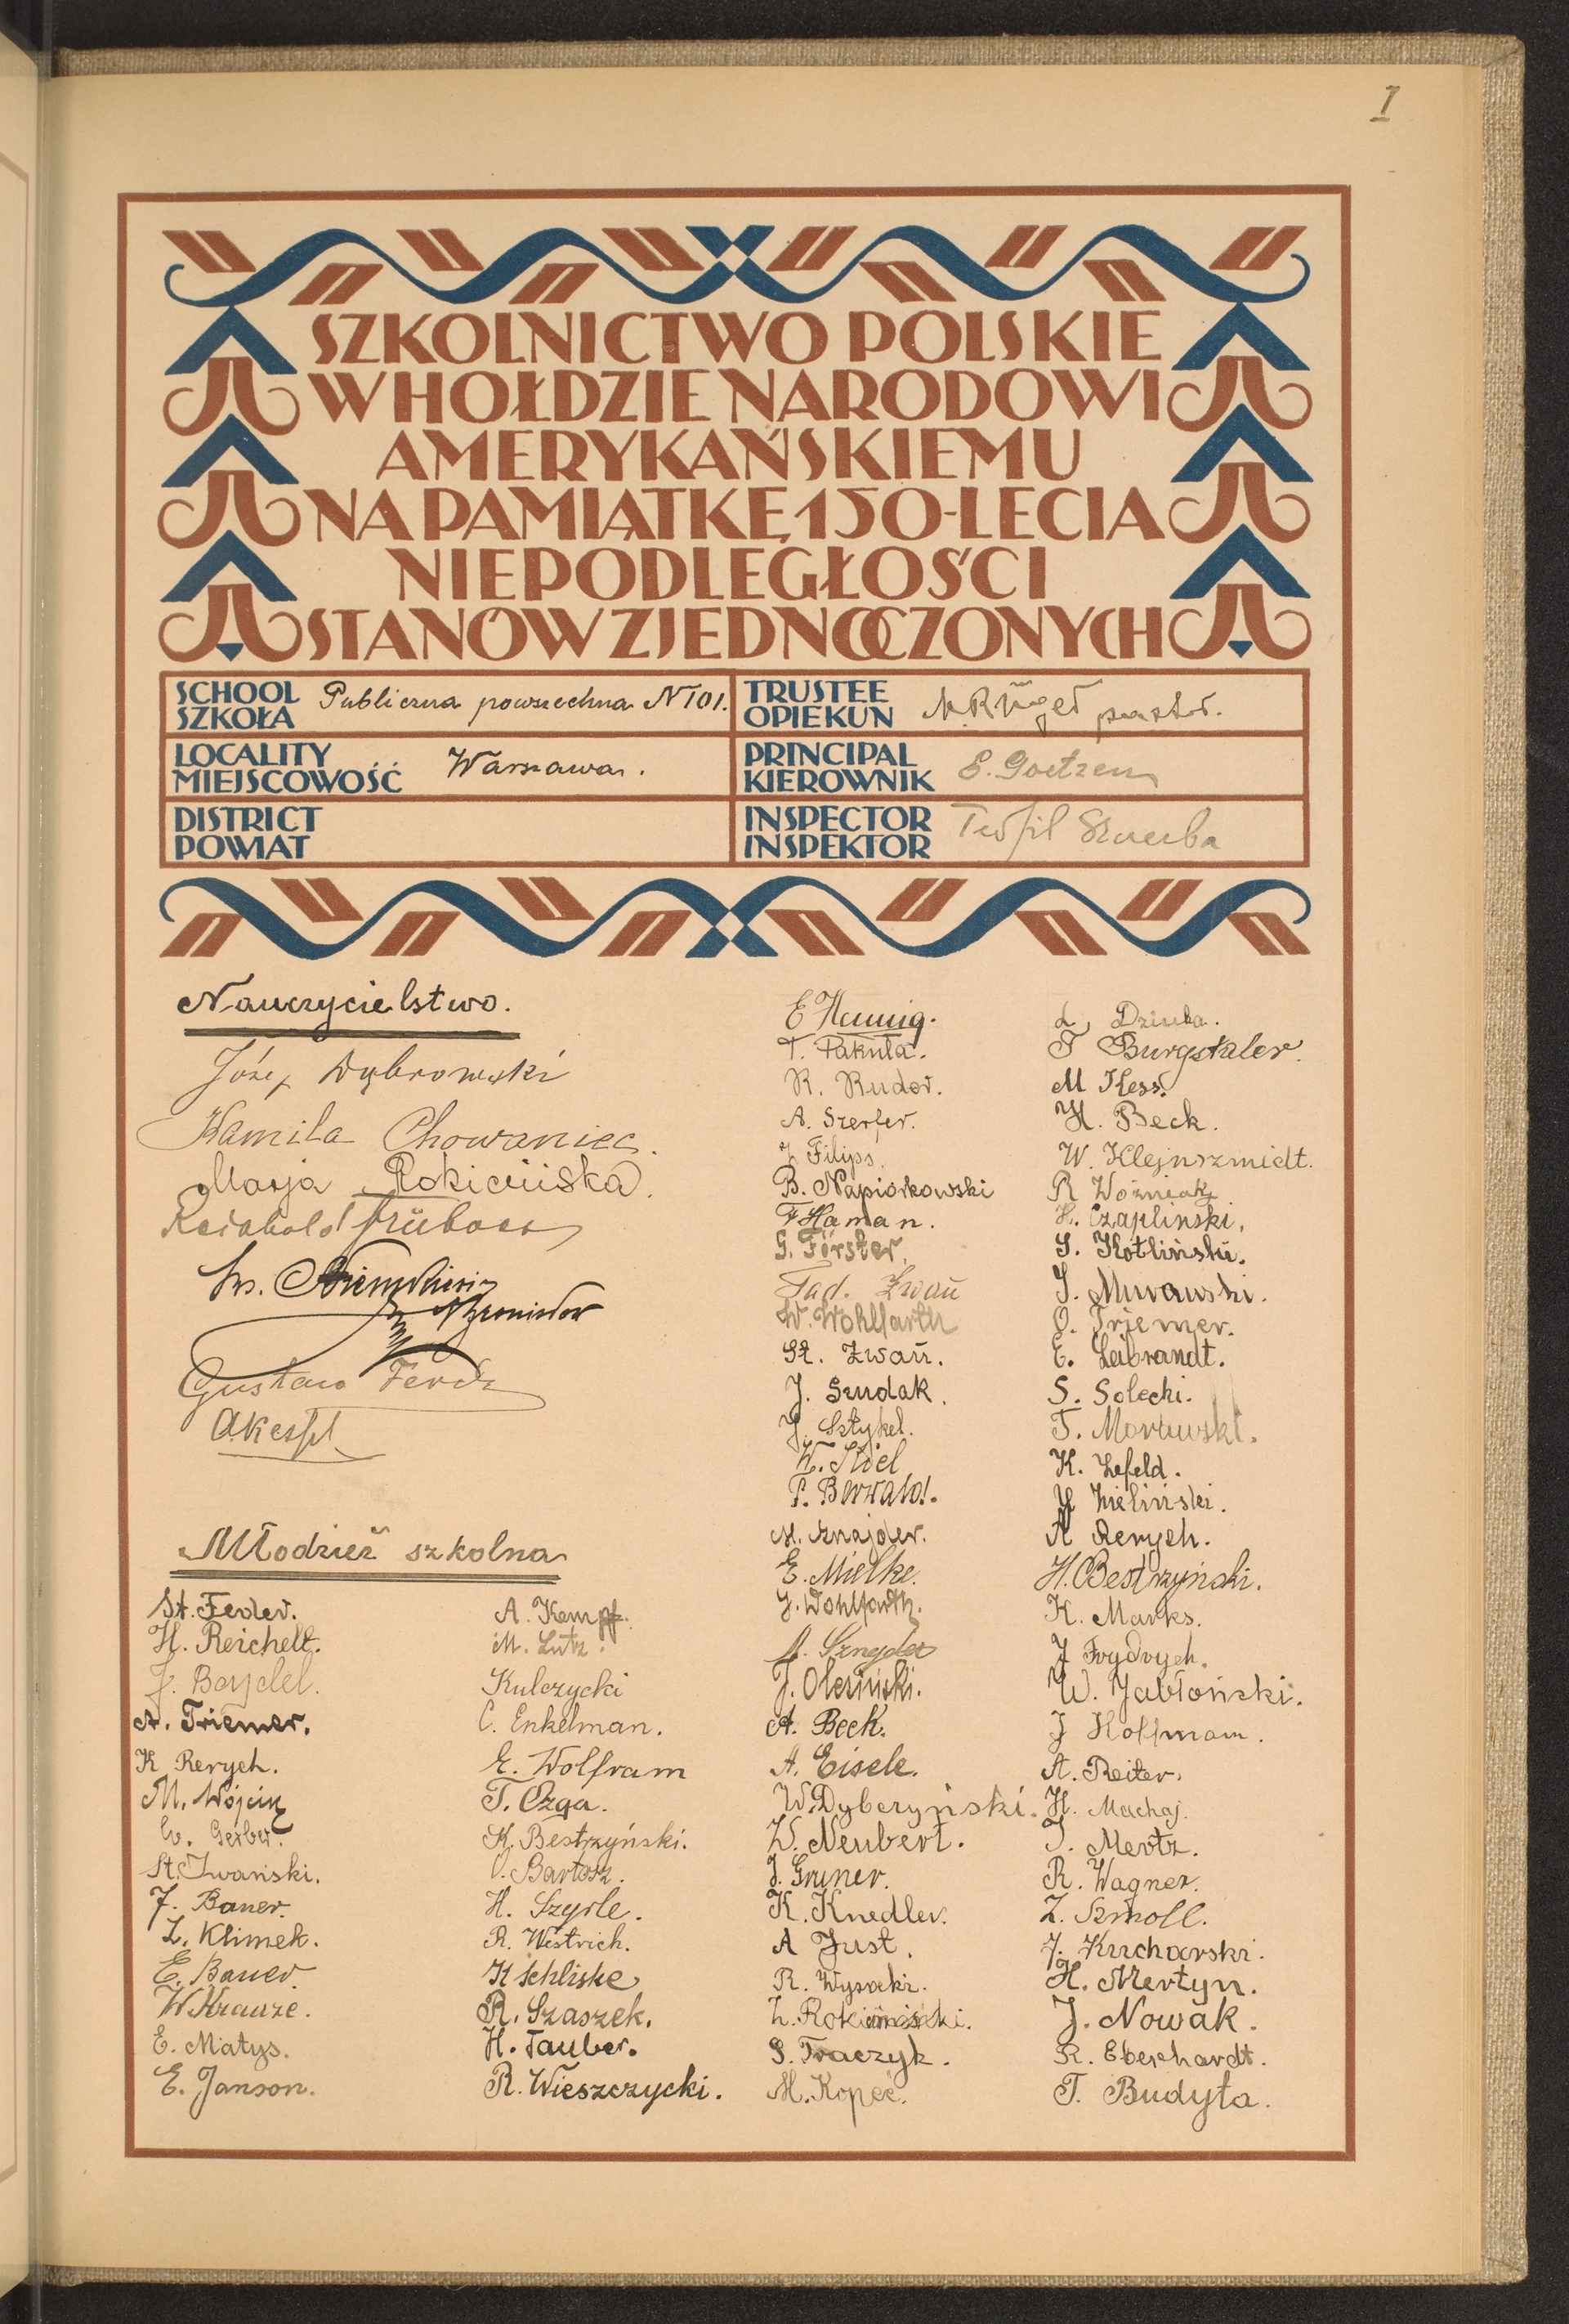 I
SZKOLNICTWO POLSKIE
W HOŁDZIE NARODOWI
AMERYKAŃSKIEMU
NA PAMIĄTKĘ 150-LECIA
NIEPODLEGŁOŚCI
STANÓW ZJEDNOCZONYCH
SCHOOL
SZKOŁA
Publiczna powszechna N 101.
TRUSTEE
OPIEKUN
pastor.
LOCALITY
MIEJSCOWOŚĆ
Warszawa.
PRINCIPAL
KIEROWNIK
E. Goetzen
DISTRICT
POWIAT
INSPECTOR
INSPEKTOR
Teofil Szczerba
Nauczycielstwo.
Józef Dąbrowski
Kamila Chowaniec.
Marja Rokicińska.
Reinhold
Gustaw
A Kessel
Młodzież szkolna
St. Feder.
H. Reichelt.
J. Beydel.
A. Triemer.
K Rerych.
M. Wójcik
Gerber.
St. Iwański.
J. Bauer.
Z. Klimek.
E. Bauer.
W. Krauze.
E. Matys.
E. Janson.
A. Kempf.
M. Lutz.
Kulczycki
C. Enkelman.
E. Wolfram
T. Ozga.
K. Bestrzyński.
O. Bartosz.
H. Szyrle.
R. Westrich.
K Schliske
R. Szaszek.
H. Tauber.
R. Wieszczycki.
E Hennig.
T. Pakuła.
R. Rudor.
A. Szerfer.
J Filips.
B. Napiórkowski
F Haman.
G. Förster.
Tad. Zwań
W. Wohlfarth
St. Zwań.
J. Szudak.
J. Sztykel.
P. Berwald.
M. Sznajder.
E. Mielke.
J. Wohlfarth.
A. Sznyder
J. Olesiński.
A. Beck.
A. Eisele.
W. Dyberzyński.
W. Neubert.
J. Gruner.
K. Knedler.
A Just.
R. Wysocki.
S. Traczyk.
M. Kopeć.
L. Dziuba.
F Burgstaler.
M Hess.
H. Beck.
W. Klejnszmidt.
R Woźniak.
H. Czapliński.
S. Kotliński.
J. Murawski.
O. Triemer.
E. Leibrandt.
S. Solecki.
T. Morawski.
K. Lefeld.
J Zieliński.
A Rerych.
H. Bestrzyński.
K. Marks.
J Frydrych.
W. Jabłoński.
J Hoffmam.
A. Reiter.
H. Machaj.
J. Mertz.
R. Wagner.
Z. Szmoll.
J. Kucharski.
H. Mertyn.
J. Nowak.
R. Eberhardt.
T. Budyta.